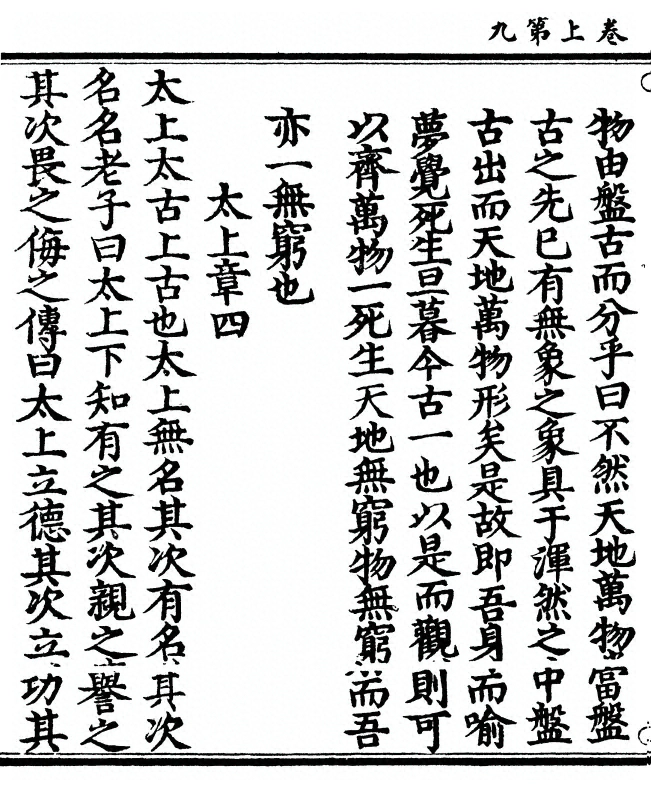 卷上第九
物由盤古而分乎曰不然天地萬物富盤
古之先已有無象之象具于渾然之中盤
古出而天地萬物形矣是故即吾身而喻
夢覺死生旦暮今古一也以是而觀則可
以齊萬物一死生天地無窮物無窮而吾
亦一無窮也
太上章四
太上太古上古也太上無名其次有名其次
名名老子曰太上下知有之其次親之譽之
其次畏之侮之傳曰太上立德其次立功其